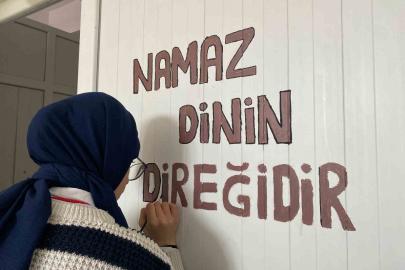 NAMAZ
DiNiN
DiREĞiDiR